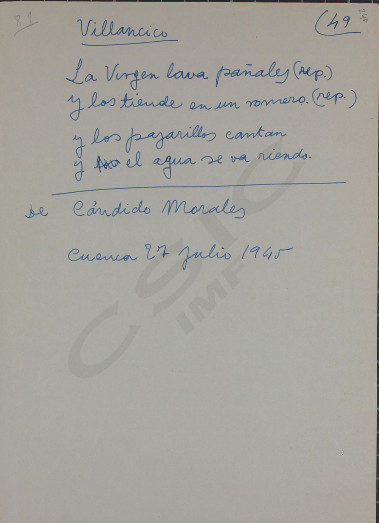 81
(49
Villancico
La Virgen lava pañales (rep.)
y los tiende en un romero. (rep.)
y los pajarillos cantan
y el agua se va riendo.
de Cándido Morales
Cuenca 27 julio 1945
CSIC
IMF